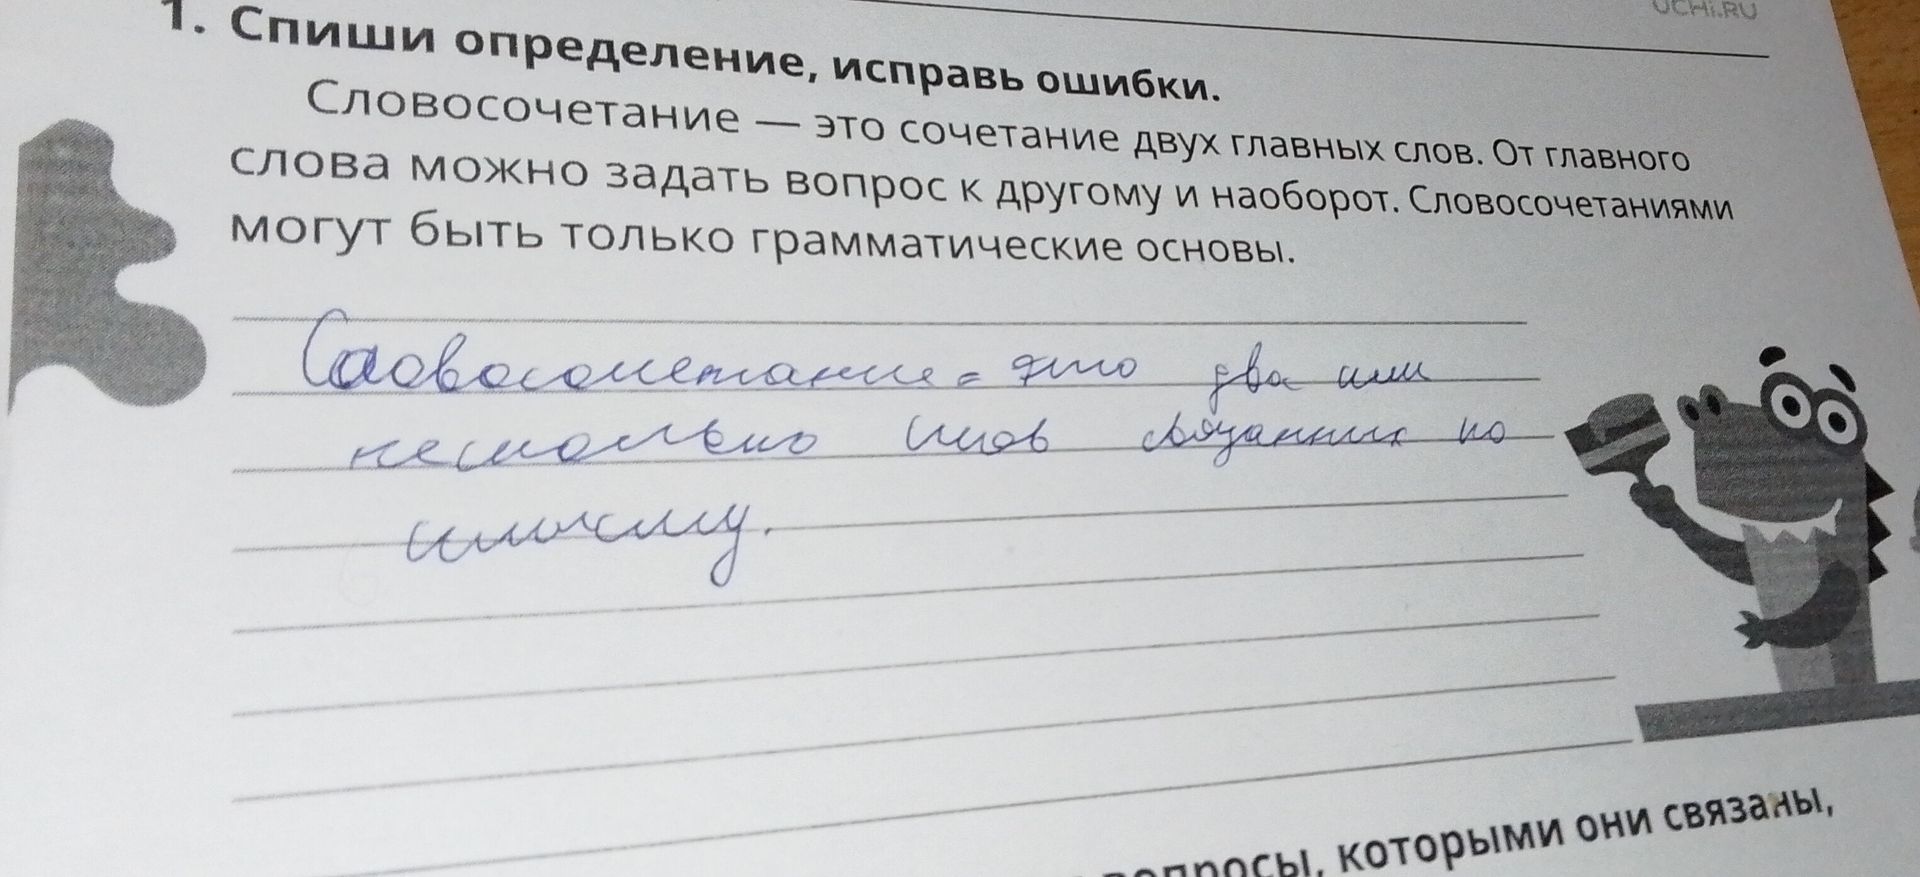 UCHi.RU
1. Спиши определение, исправь ошибки.
Словосочетание — это сочетание двух главных слов. От главного
слова можно задать вопрос к другому и наоборот. Словосочетаниями
могут быть только грамматические основы.
Словосочетание - это два или
несколько слов связанных по
смыслу.
вопросы, которыми они связаны,